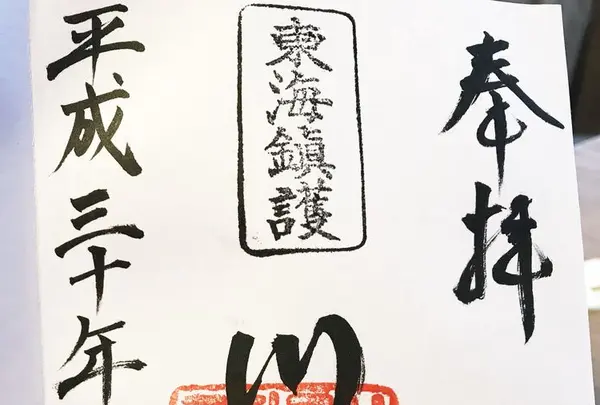 奉拝
東海鎮護
平成三十年